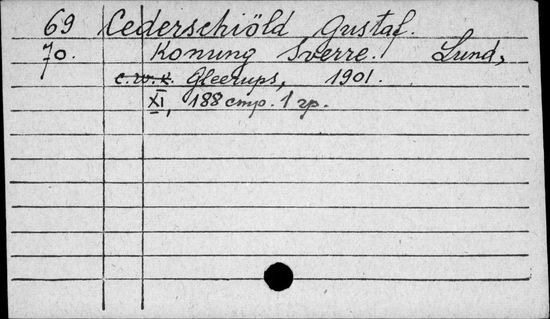 69 Cederschiöld Gustaf.
70. Konung Sverre. Lund,
Gleerups, 1901.
XI, 188 стр. 1 гр.